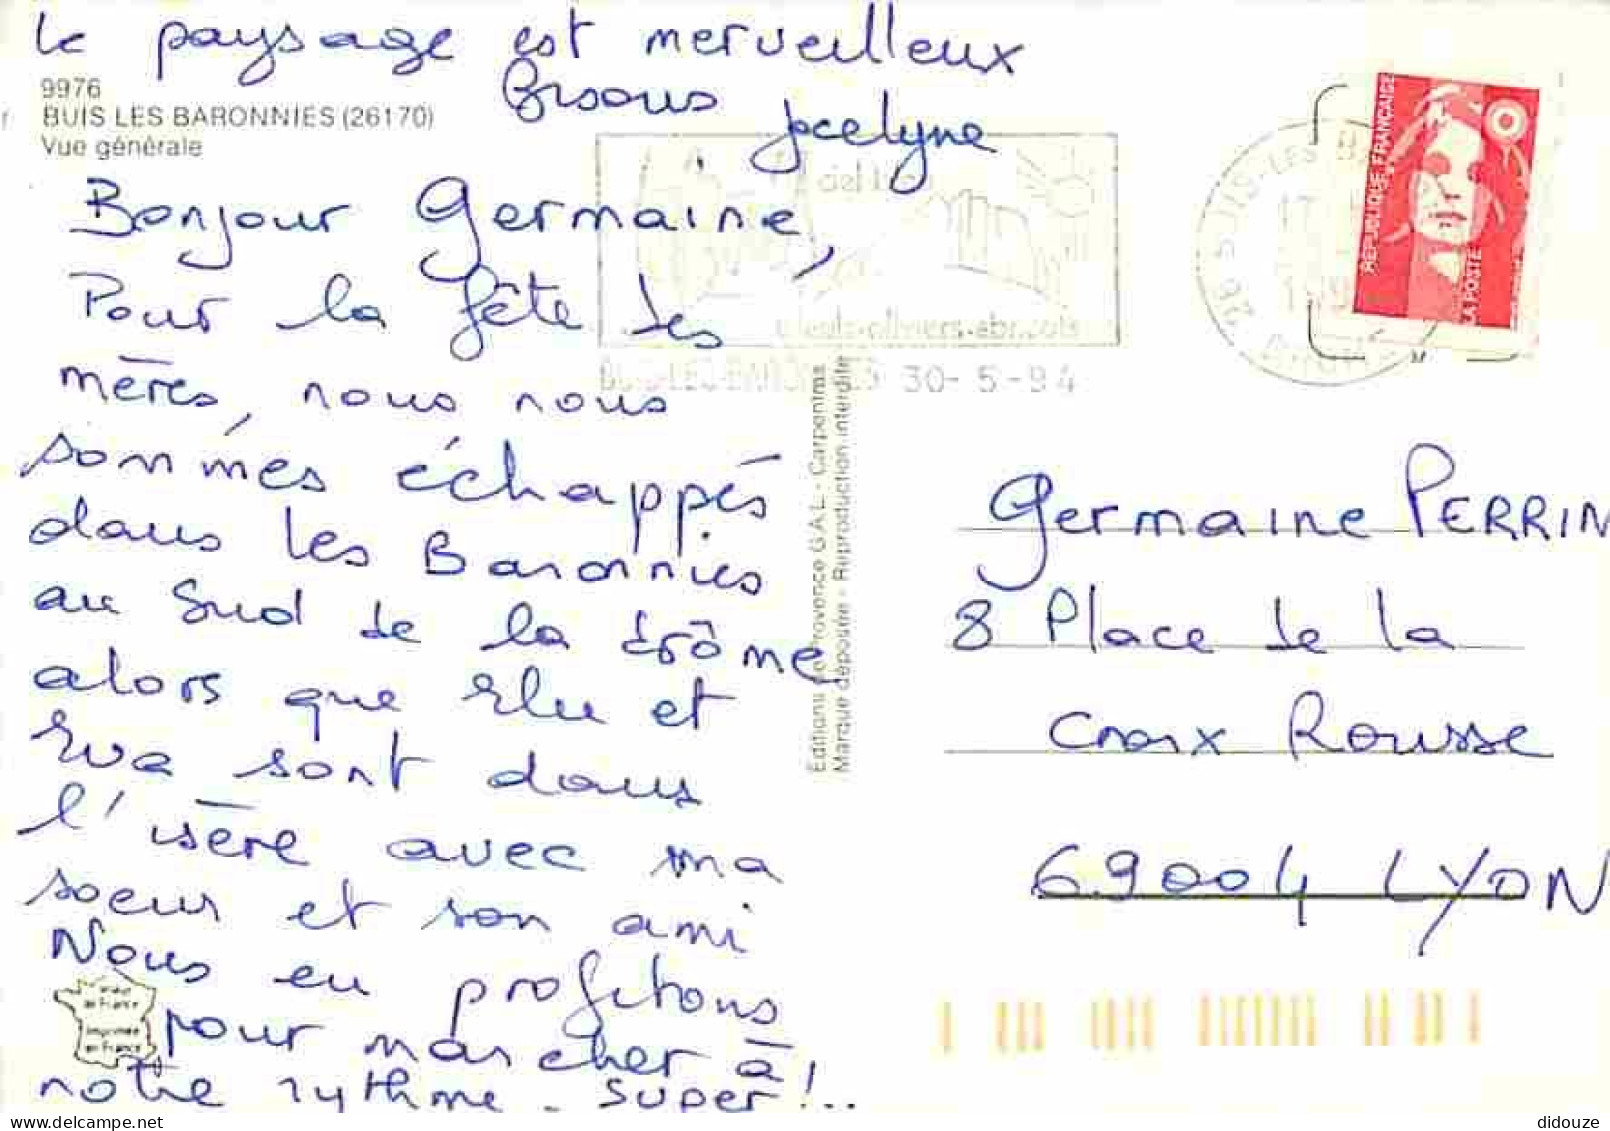 le paysage est merveilleux
Bisous
Jocelyne
9976
BUIS LES BARONNIES (26170)
Vue générale
Bonjour Germaine,
Pour la fête des
mères, nous nous
sommes échappés
dans les Baronnies
au Sud de la Drôme
alors que et
Eva sont dans
l'isère avec ma
soeur et son ami
Nous en profitons
pour marcher à
notre rythme. Super!..
Imprimée
en France
ciel bleu
tilleuls-oliviers-abricots
BUIS-LES-BARONNIES 30-5-94
26 BUIS-LES-B
17
REPUBLIQUE FRANÇAISE
LA POSTE
Editions de Provence G.A.L. - Carpentras
Marque déposée - Reproduction interdite
Germaine PERRIN
8 Place de la
Croix Rousse
69004 LYON
didouze